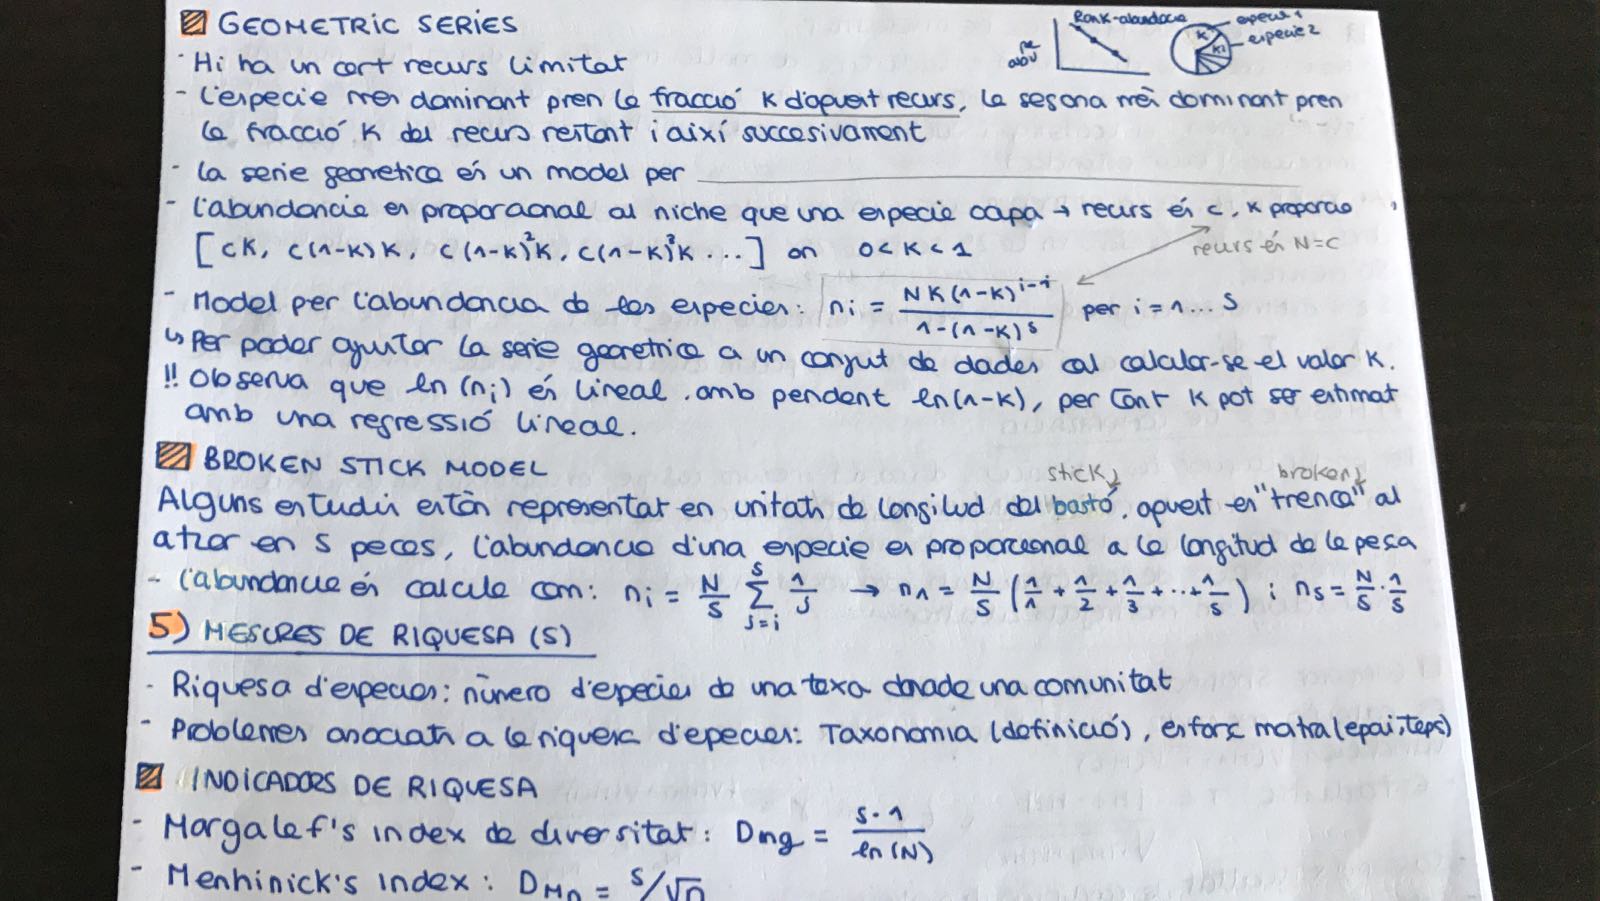 GEOMETRIC SERIES
Rank-abundacia
especie 1
especie 2
K
K1
abu
· Hi ha un cert recurs limitat
- L'especie més dominant pren la fracció K d'aquest recurs, la segona més dominant pren
la fracció K del recurs restant i així succesivament
- La serie geometica és un model per
- L'abundancia es proporcional al niche que una especie ocupa → recurs és C, K proporcio
[CK, C(1-K)K, C(1-K)²K, C(1-K)³K ...] on 0<K<1
recurs és N=C
- Model per l'abundancia de les especies: ni = NK(1-K)^i-1 / 1-(1-K)^S per i=1... S
↳ Per poder ajustar la serie geometrica a un conjut de dades cal calcular-se el valor K.
!! Observa que ln(ni) és lineal amb pendent ln(1-K), per tant K pot ser estimat
amb una regressió lineal.
BROKEN STICK MODEL
stick
broken
Alguns estudis estàn representat en unitats de longitud del bastó, aquest es "trenca" al
atzar en S peces, l'abundancia d'una especie es proporcional a la longitud de la peça
- L'abundancia és calcula com: ni = N/S Σ S j=i 1/J → n1 = N/S (1/1 + 1/2 + 1/3 + ... + 1/S) ; ns = N/S · 1/S
5) MESURES DE RIQUESA (S)
- Riquesa d'especies: número d'especies de una taxa donada una comunitat
- Problemes associats a la riquesa d'epecies: Taxonomia (definició), esforç mostra (epai, teps)
INDICADORS DE RIQUESA
- Margalef's index de diversitat: Dmg = S·1 / ln(N)
- Menhinick's index: DMn = S/√n